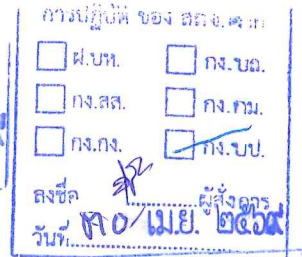 การปฏิบัติ ของ
ฝ.บท. กง.บถ.
กง.สส. กง.กม.
กง.กง. กง.บป.
ลงชื่อ ผู้สั่งการ
วันที่ ๓๐ เม.ย. ๒๕๖๙